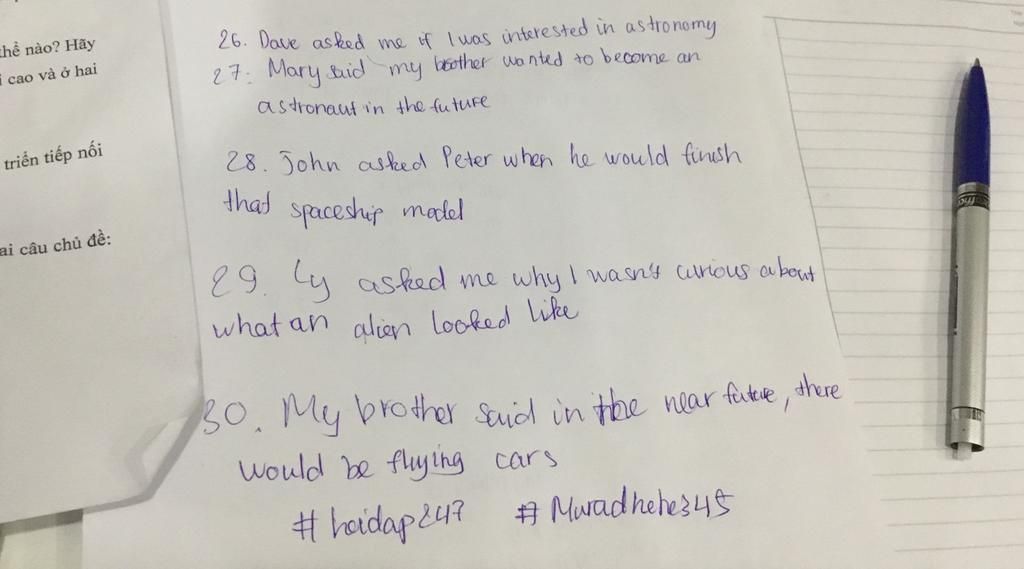 thế nào? Hãy
cao và ở hai
triển tiếp nối
ai câu chủ đề:
26. Dave asked me if I was interested in astronomy
27. Mary said my brother wanted to become an
astronaut in the future
28. John asked Peter when he would finish
that spaceship model
29. Ly asked me why I wasn't curious about
what an alien looked like
30. My brother said in the near future, there
would be flying cars
#hoidap247 #Muradhehe345